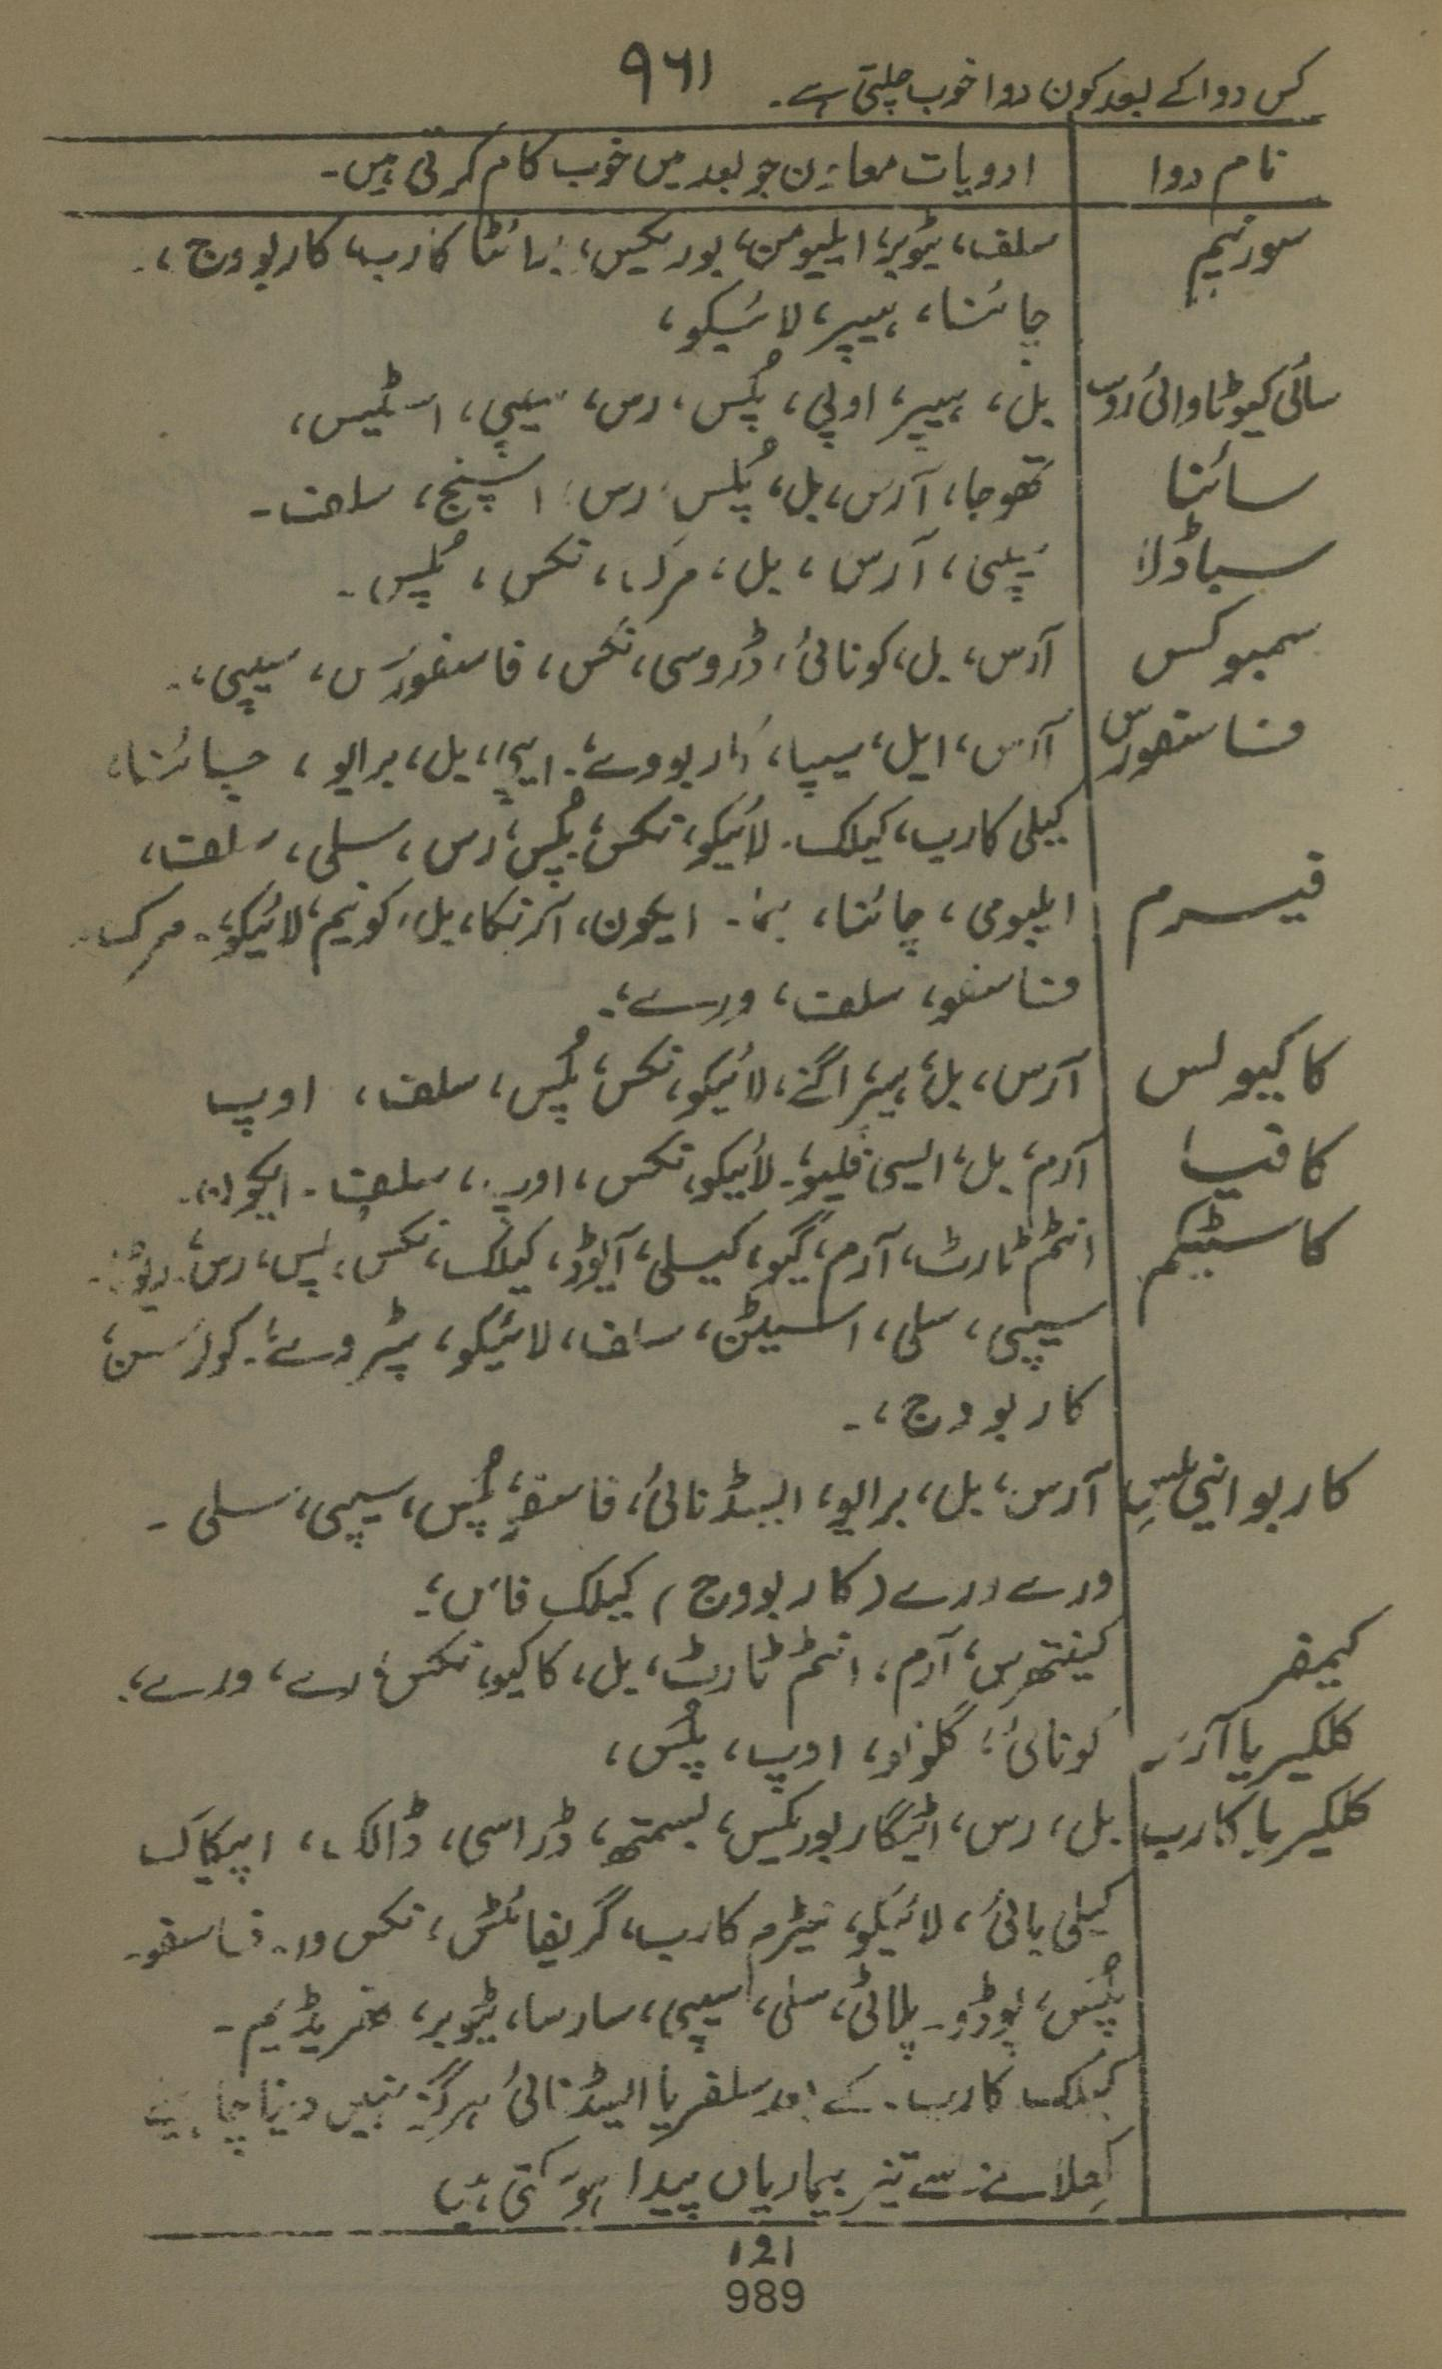 کس دوا کے بعد کون دوا خوب چلتی ہے۔ ۹۶۱
نام دوا ادویات معاون جو بعد میں خوب کام کرتی ہیں۔
سورنیم سلف، ٹیوبر، ایلیومن، بوریکس، برائٹا کارب، کاربووج،۔
چائنا، ہیپر، لائیکو،
سائی کیوٹا وائی روسا بل، ہیپر، اوپی، پلس، رس، سیپی، اسٹیس،
سائنا تھوجا، آرس، بل، پلس، رس، اسپنج، سلف۔
سباڈلا آرس، بل، مرک، نکس، پلس۔
سمبوکس آرس، بل، کونائی، ڈروسی، نکس، فاسفورس، سیپی،۔
فاسفورس آرس، ایل، سیپا، کاربووے، بل، برایو، چائنا،
کیلی کارب، کیلک۔ لائیکو، نکس، پلس، رس، سلی، سلف،
فیرم ایلیومی، چائنا، ایکون، آرنکا، بل، کونیم، لائیکو،۔ مرک۔
فاسفو، سلف، ورے،۔
کاکیولس آرس، بل، اگنے، لائیکو، نکس، پلس، سلف، اوپ
کافیا آرم، بل، لائیکو، نکس، اوپ،، سلف۔ ایکون۔
کاسٹیکم انٹم ٹارٹ، آرم، گیو، کیلی، آیوڈ، کیلک، نکس، پلس، رس،
سیپی، سلی، اسٹین، سلف، لائیکو، پٹرو
کاربووج،۔
کاربوانی ملس آرس، بل، برایو، ایسڈ نائی، فاسفو، پلس، سیپی، سلی۔
ورے ورے (کاربووج) کیلک فاس،
کیمفر کینتھرس، آرم، انٹم ٹارٹ، بل، کاکیو، نکس، رے، ورے،
کلکیریا آرس کونائی، گلونو، اوپ، پلس،
کلکیریا کارب بل، رس، بوریکس، بسمتھ، ڈراسی، ڈالک، اپیکاک
کیلی بائی، لائیکو، نیٹرم کارب، گریفائٹس، نکس وا۔ فاسفو۔
پلس، پوڈو۔ پلاٹی، سلی، سیپی، سارسا، ٹیوبر،
کیلک کارب۔ کے بعد سلفر یا ایسڈ نائی ہرگز نہیں دینا چاہیئے
کھلانے سے تیز بیماریاں پیدا ہو سکتی ہیں
121
989